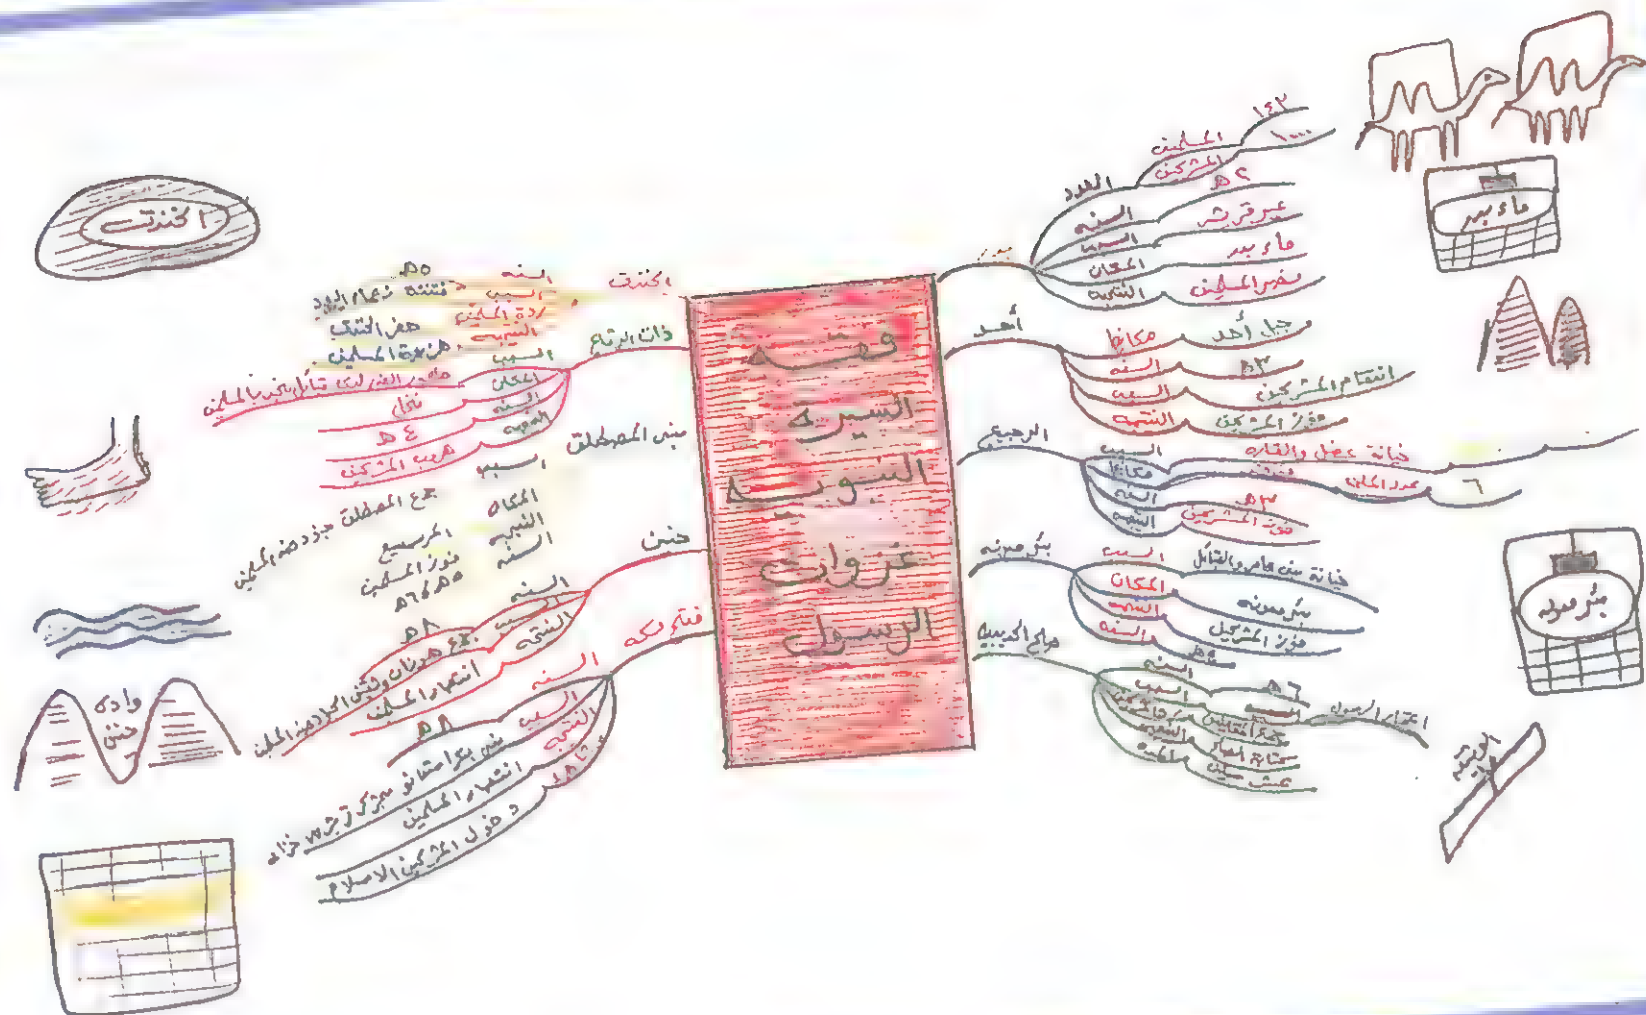 فقه
السيرة
النبوية
غزوات
الرسول
بدر
العدد
المسلمين
١٤٣
المشركين
١٠٠٠
السنه
٢ه
السبب
عير قريش
المكان
ماء بدر
النتيجه
نصر المسلمين
ماء بدر
أحد
مكانها
جبل أحد
السنه
٣ه
السبب
انتقام المشركين
النتيجه
فوز المشركين
الرجيع
السبب
خيانة عضل والقاره
مكانها
عدد المسلمين
٦
السنه
٣ه
النتيجه
فوز المشركين
بئر معونه
السبب
خيانة بني عامر والقبائل
المكان
بئر معونه
النتيجه
فوز المشركين
السنه
بئر معونه
صلح الحديبيه
السنه
٦ه
السبب
النتيجه
الخندق
السنه
٥ه
السبب
فتنة زعماء اليهود
النتيجه
هزيمة المسلمين
الخندق
ذات الرقاع
السبب
المكان
نخل
السنه
٤ه
النتيجه
هروب المشركين
بني المصطلق
السبب
جمع المصطلق جنود ضد المسلمين
المكان
المريسيع
النتيجه
فوز المسلمين
السنه
٥ه ٦ه
حنين
السنه
٨ه
السبب
النتيجه
انتصار المسلمين
وادي
حنين
فتح مكه
السنه
٨ه
السبب
النتيجه
انتصار المسلمين
دخول المشركين الاسلام